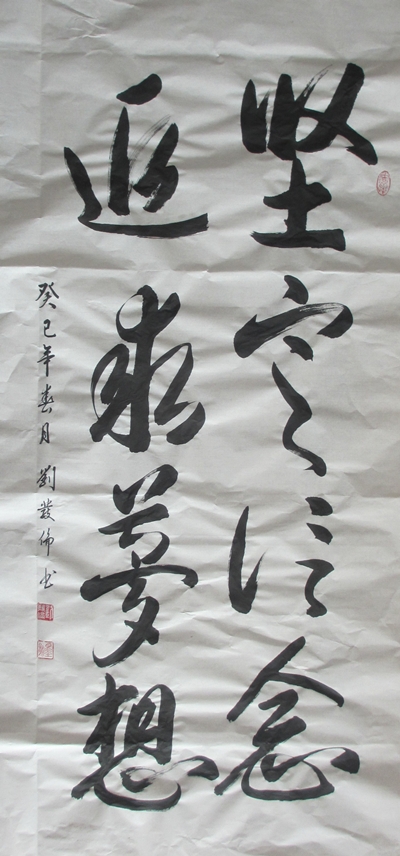 坚定信念
追求梦想
癸巳年春月刘发佛书